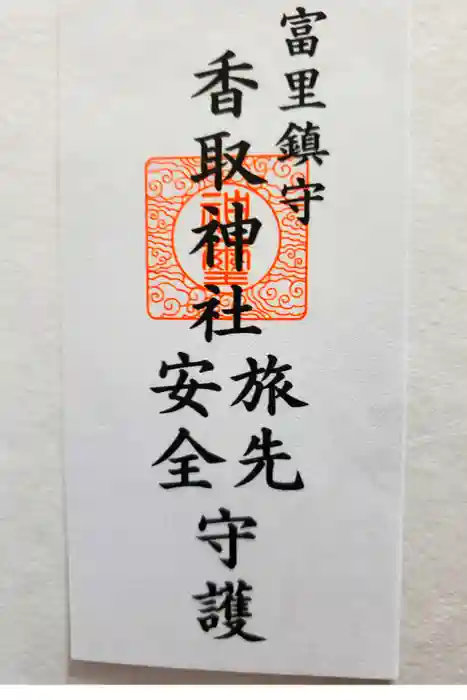 富里鎮守
香取神社
旅先
安全
守護
神璽